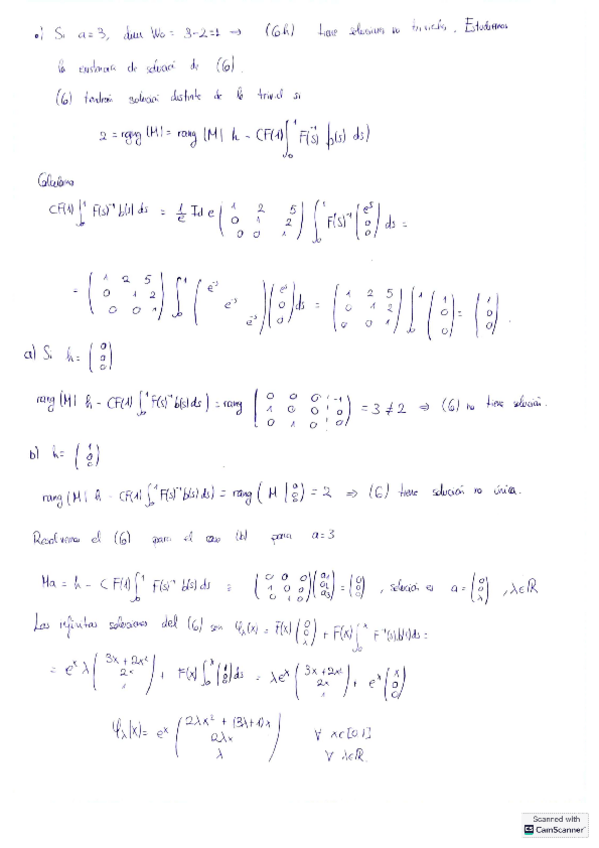 •) Si a=3, dim W₀ = 3-2=1 → (Gh) tiene soluciones no triviales. Estudiemos
la existencia de solución de (G).
(G) tendrá solución distinta de la trivial si
2 = rang (M) = rang (M| h - CF(1)∫₀¹ F(s)⁻¹ b(s) ds)
Calculamos
CF(1)∫₀¹ F(s)⁻¹ b(s) ds = 1/e Id e (1 2 5; 0 1 2; 0 0 1) ∫₀¹ F(s)⁻¹ (eˢ; 0; 0) ds =
= (1 2 5; 0 1 2; 0 0 1) ∫₀¹ (e⁻ˢ; e⁻ˢ; e⁻ˢ)(eˢ; 0; 0) ds = (1 2 5; 0 1 2; 0 0 1) ∫₀¹ (1; 0; 0) = (1; 0; 0).
a) Si h = (0; 0; 0)
rang (M| h - CF(1)∫₀¹ F(s)⁻¹ b(s) ds) = rang (0 0 0 | -1; 1 0 0 | 0; 0 1 0 | 0) = 3 ≠ 2 ⇒ (G) no tiene solución.
b) h = (1; 0; 0)
rang (M| h - CF(1)∫₀¹ F(s)⁻¹ b(s) ds) = rang (M | 0; 0; 0) = 2 ⇒ (G) tiene solución no única.
Resolvemos el (G) para el caso (b) para a=3
Ma = h - CF(1)∫₀¹ F(s)⁻¹ b(s) ds ≡ (0 0 0; 1 0 0; 0 1 0)(a₁; a₂; a₃) = (0; 0; 0), solución es a = (0; 0; λ), λ∈ℝ
Las infinitas soluciones del (G) son φλ(x) = F(x)(0; 0; λ) + F(x)∫₀ˣ F⁻¹(s)b(s)ds =
= eˣ λ (3x + 2x²; 2x; 1) + F(x)∫₀ˣ (1; 0; 0) ds = λeˣ (3x + 2x²; 2x; 1) + eˣ (x; 0; 0)
φλ(x) = eˣ (2λx² + (3λ+1)x; 2λx; λ) ∀ x∈[0,1]
∀ λ∈ℝ.
Scanned with
CS CamScanner